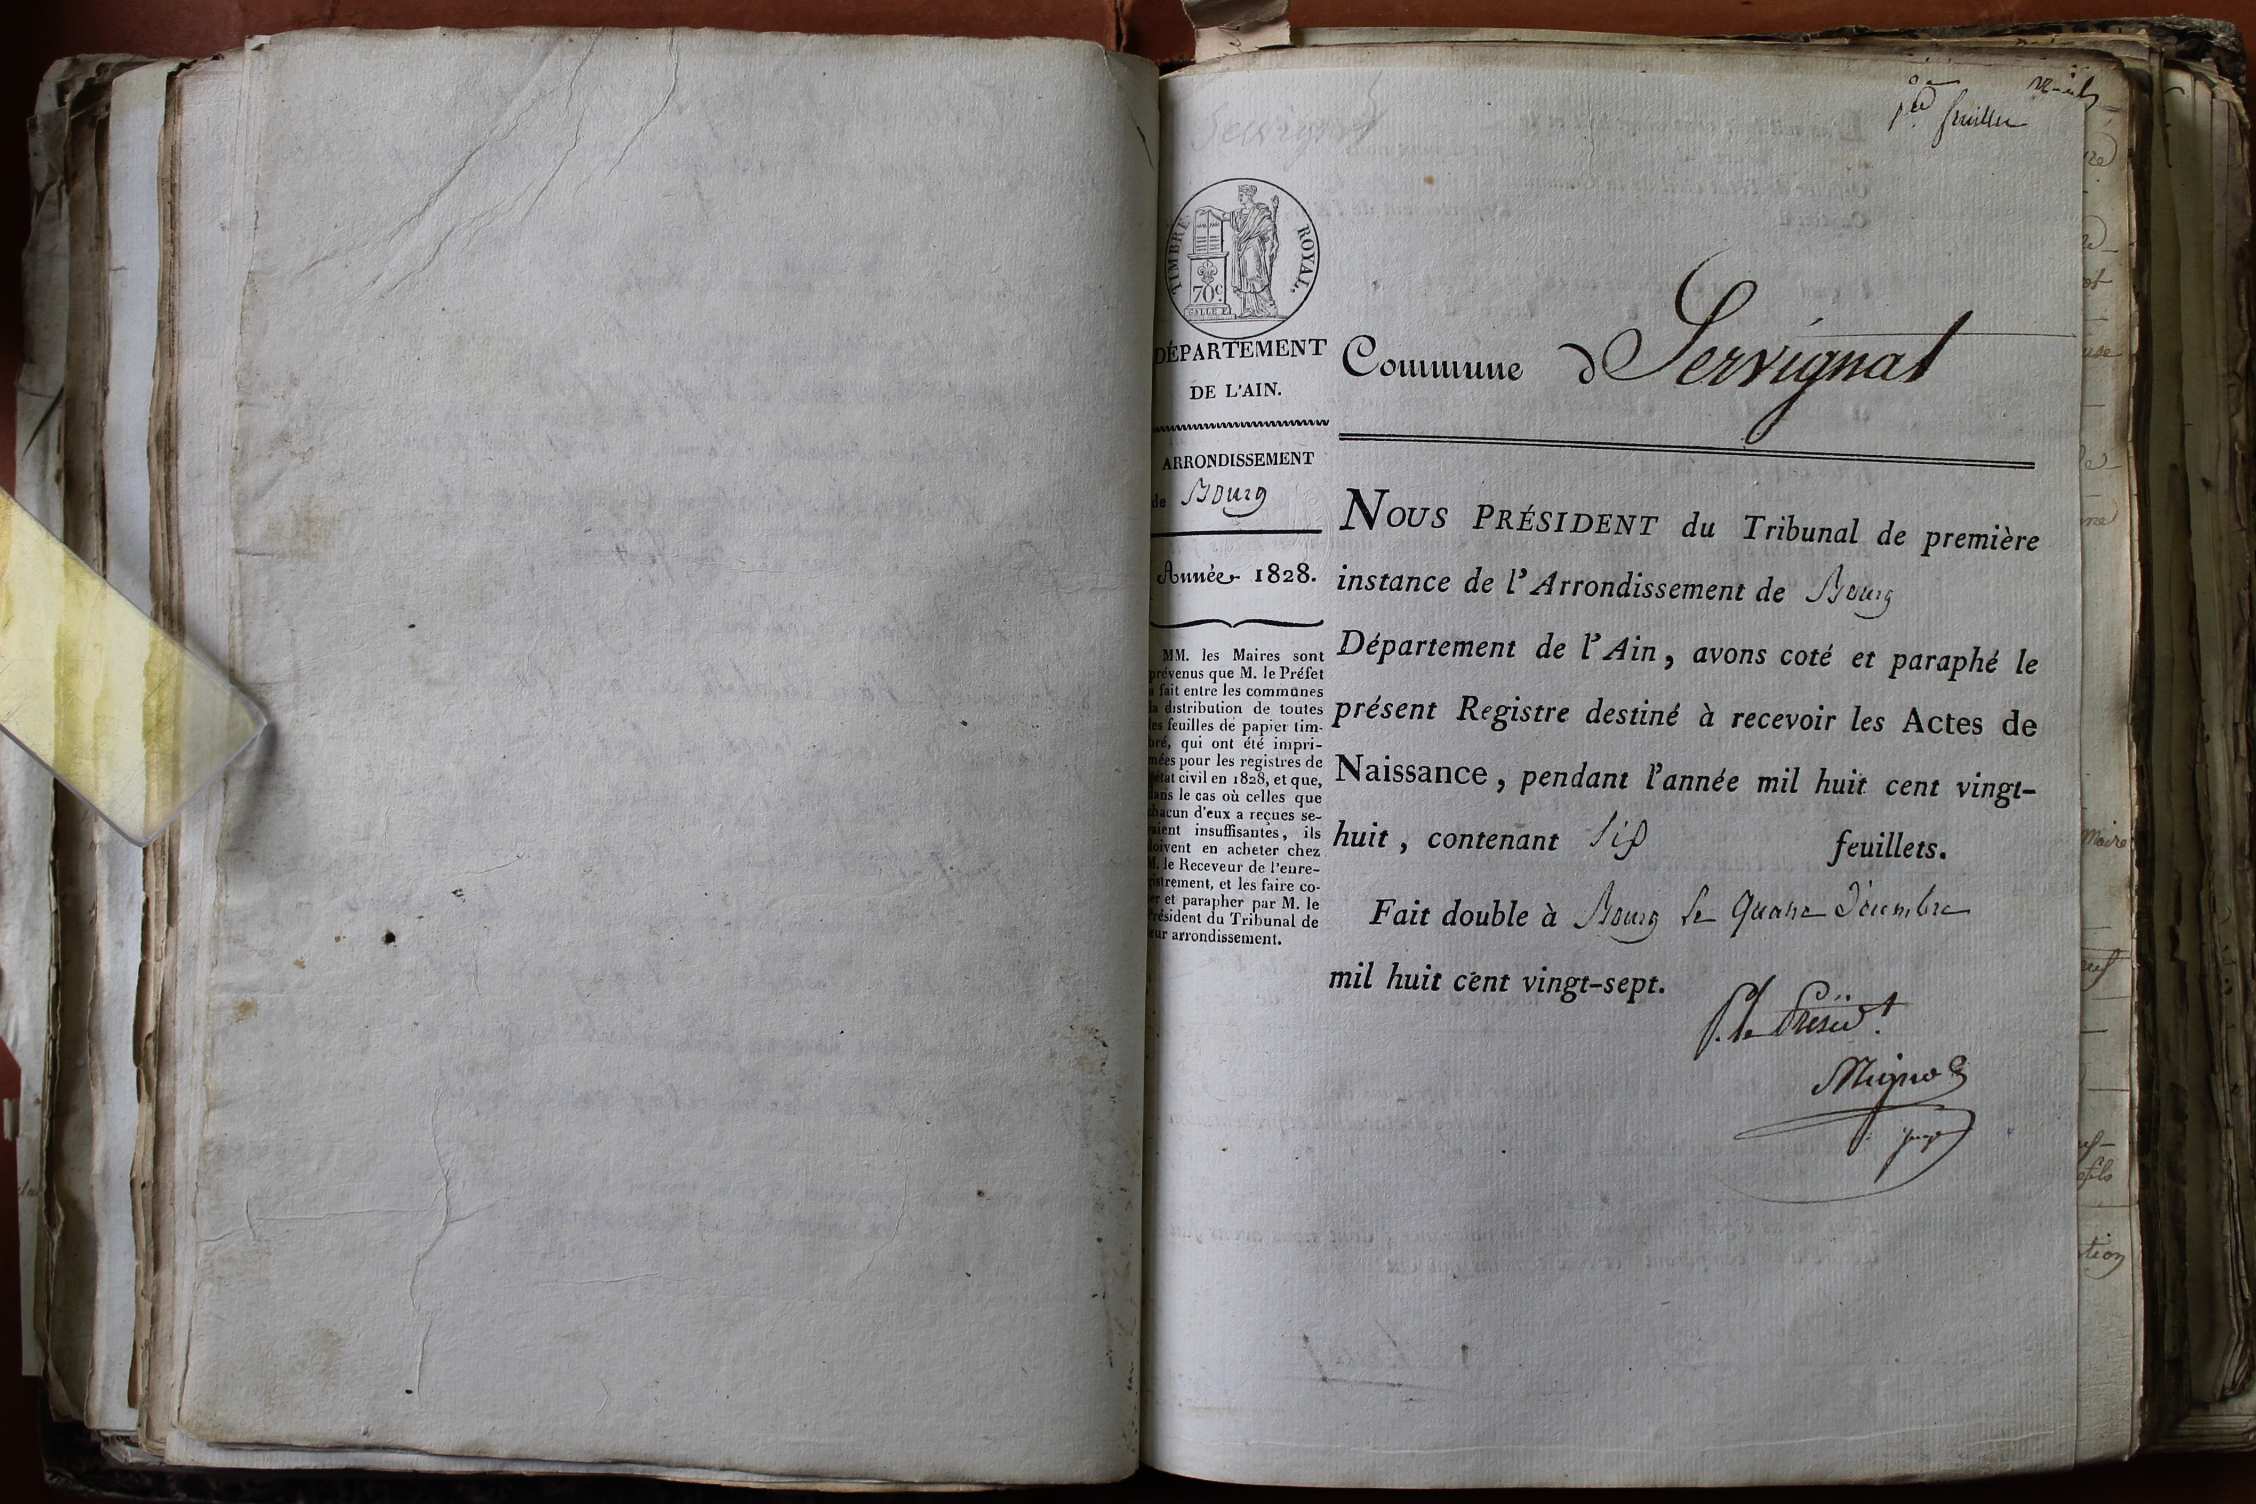 1er feuillet
TIMBRE ROYAL.
70c
DÉPARTEMENT
DE L'AIN.
ARRONDISSEMENT
de Bourg
Année 1828.
MM. les Maires sont
prévenus que M. le Préfet
a fait entre les communes
la distribution de toutes
les feuilles de papier tim-
bré, qui ont été impri-
mées pour les registres de
l'état civil en 1828, et que,
dans le cas où celles que
chacun d'eux a reçues se-
raient insuffisantes, ils
doivent en acheter chez
M. le Receveur de l'enre-
gistrement, et les faire co-
ter et parapher par M. le
Président du Tribunal de
leur arrondissement.
Commune de Servignat
NOUS PRÉSIDENT du Tribunal de première
instance de l'Arrondissement de Bourg
Département de l'Ain, avons coté et paraphé le
présent Registre destiné à recevoir les Actes de
Naissance, pendant l'année mil huit cent vingt-
huit, contenant six feuillets.
Fait double à Bourg le quatre Décembre
mil huit cent vingt-sept.
P. le Présidt.
juge